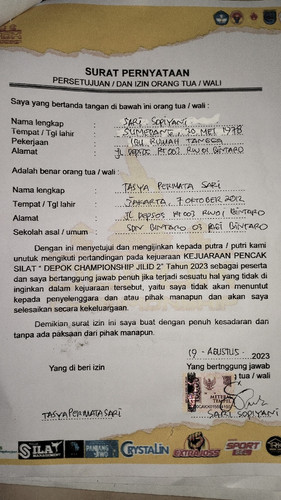 SURAT PERNYATAAN
PERSETUJUAN / DAN IZIN ORANG TUA / WALI
Saya yang bertanda tangan di bawah ini orang tua / wali :
Nama lengkap : SARI SOPIYANI
Tempat / Tgl lahir : SUMEDANG, 30 MEI 1978
Pekerjaan : IBU RUMAH TANGGA
Alamat : JL DEPSOS RT 003 RW 01 BINTARO
Adalah benar orang tua / wali :
Nama lengkap : TASYA PERMATA SARI
Tempat / Tgl lahir : JAKARTA, 7 OKTOBER 2012
Alamat : JL DEPSOS RT 003 RW 01 BINTARO
Sekolah asal / umum : SDN BINTARO 03 PAGI BINTARO
Dengan ini menyetujui dan mengijinkan kepada putra / putri kami
unutuk mengikuti pertandingan pada kejuaraan KEJUARAAN PENCAK
SILAT " DEPOK CHAMPIONSHIP JILID 2" Tahun 2023 sebagai peserta
dan saya bertanggung jawab penuh jika terjadi sesuatu hal yang tidak di
inginkan dalam kejuaraan tersebut, yaitu saya tidak akan menuntut
kepada penyelenggara dan atau pihak manapun dan akan saya
selesaikan secara kekeluargaan.
Demikian surat izin ini saya buat dengan penuh kesadaran dan
tanpa ada paksaan dari pihak manapun.
19 - AGUSTUS - 2023
Yang di beri izin
Yang bertnggung jawab
tua / wali
METERAI
TEMPEL
TASYA PERMATA SARI
SARI SOPIYANI
SILAT
PADANG
CRYSTALIN
EXTRA JOSS
SPORT